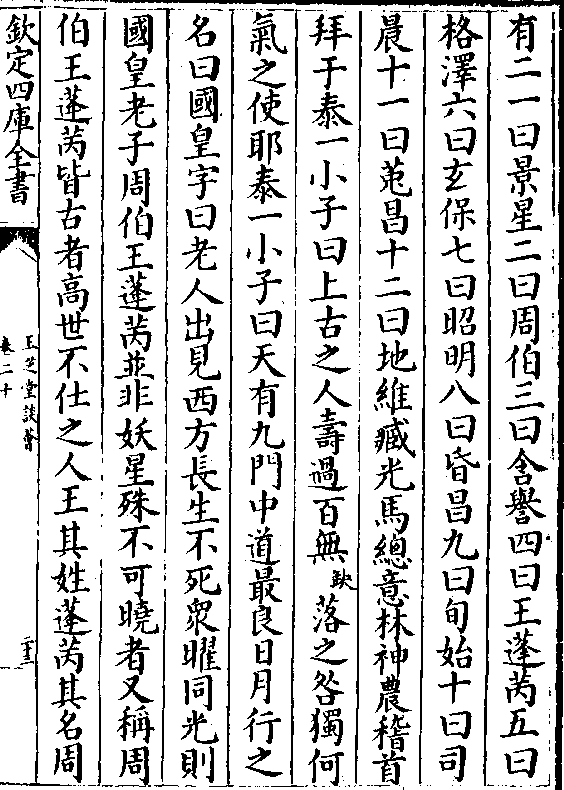 有二一曰景星二曰周伯三曰含譽四曰王蓬芮五曰
格澤六曰玄保七曰昭明八曰昏昌九曰旬始十曰司
晨十一曰菟昌十二曰地維臧光馬總意林神農稽首
拜于泰一小子曰上古之人壽過百無缺落之咎獨何
氣之使耶泰一小子曰天有九門中道最良日月行之
名曰國皇字曰老人出見西方長生不死衆曜同光則
國皇老子周伯王蓬芮並非妖星殊不可曉者又稱周
伯王蓬芮皆古者高世不仕之人王其姓蓬芮其名周
欽定四庫全書
玉芝堂談薈
卷二十
二十三